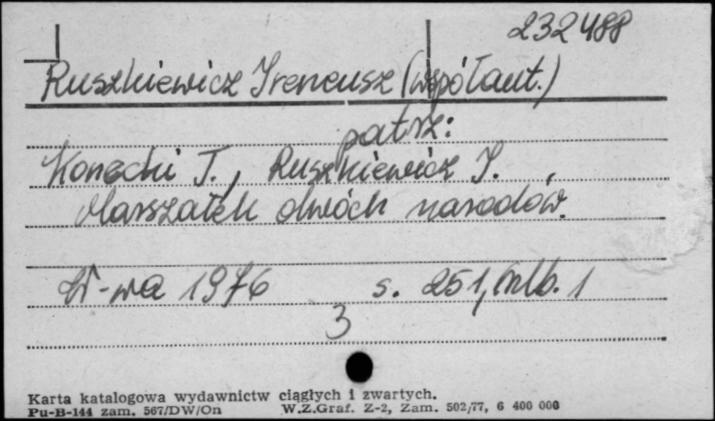 232488
Ruszkiewicz Ireneusz (współaut.)
patrz:
Konecki T., Ruszkiewicz I.
Marszałek dwóch narodów.
W-wa 1976 s. 251, nlb. 1
3
Karta katalogowa wydawnictw ciągłych i zwartych.
Pu-B-144 zam. 567/DW/On W.Z.Graf. Z-2, Zam. 502/77, 6 400 000